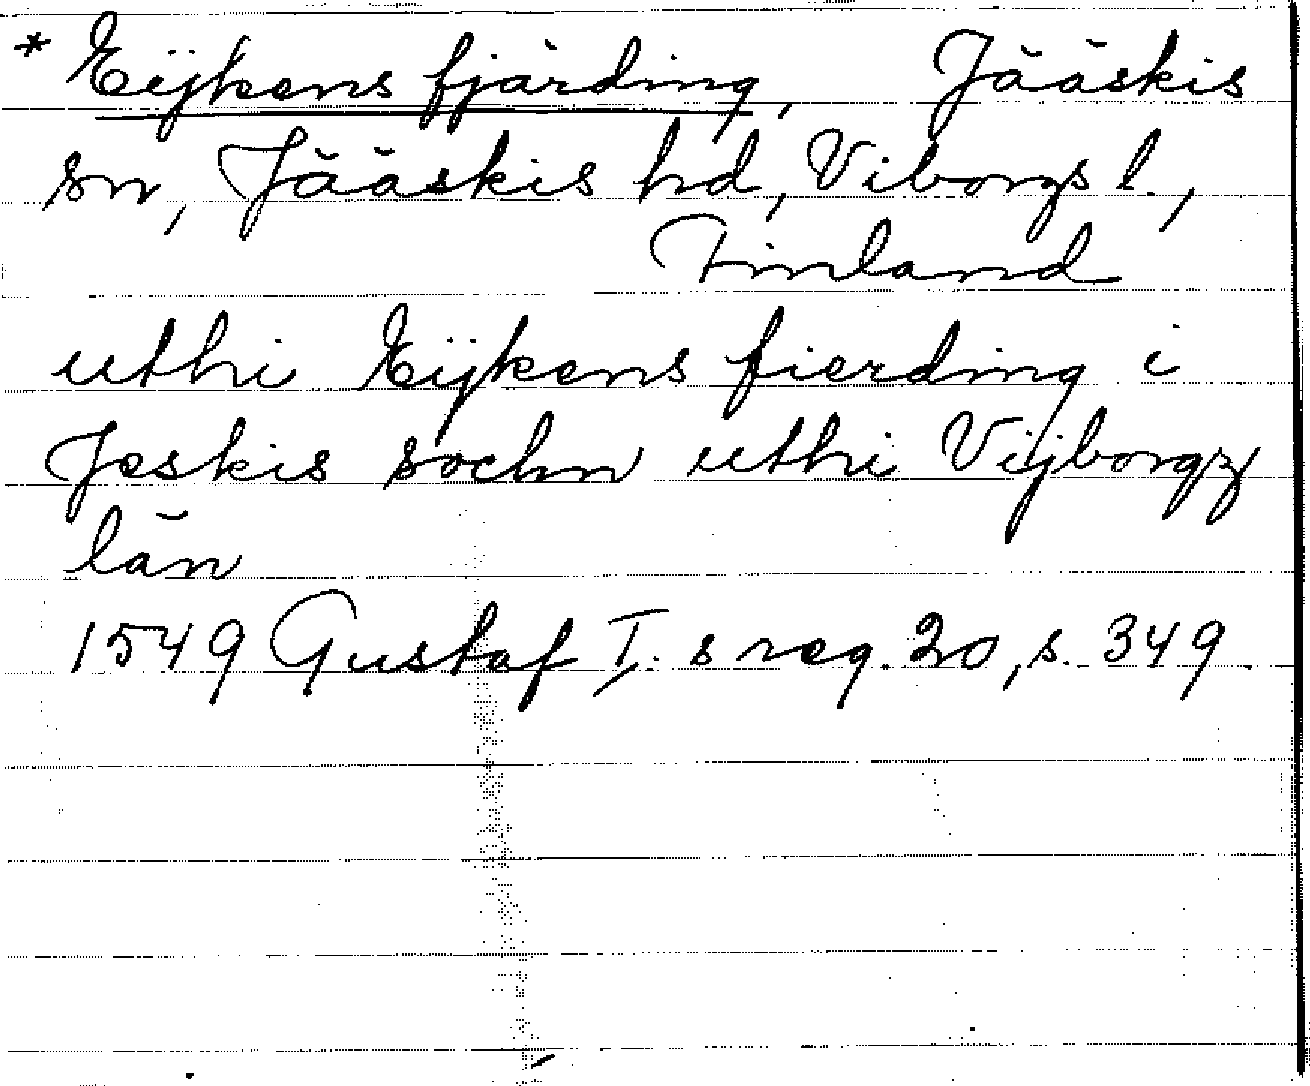 * Eijkens fjärding, Jääskis
sn, Jääskis hd, Viborgs l.,
Finland
uthi Eijkens fierding i
Jeskis sochn uthi Vijborgz
län
1549 Gustaf I:s reg. 20, s. 349.